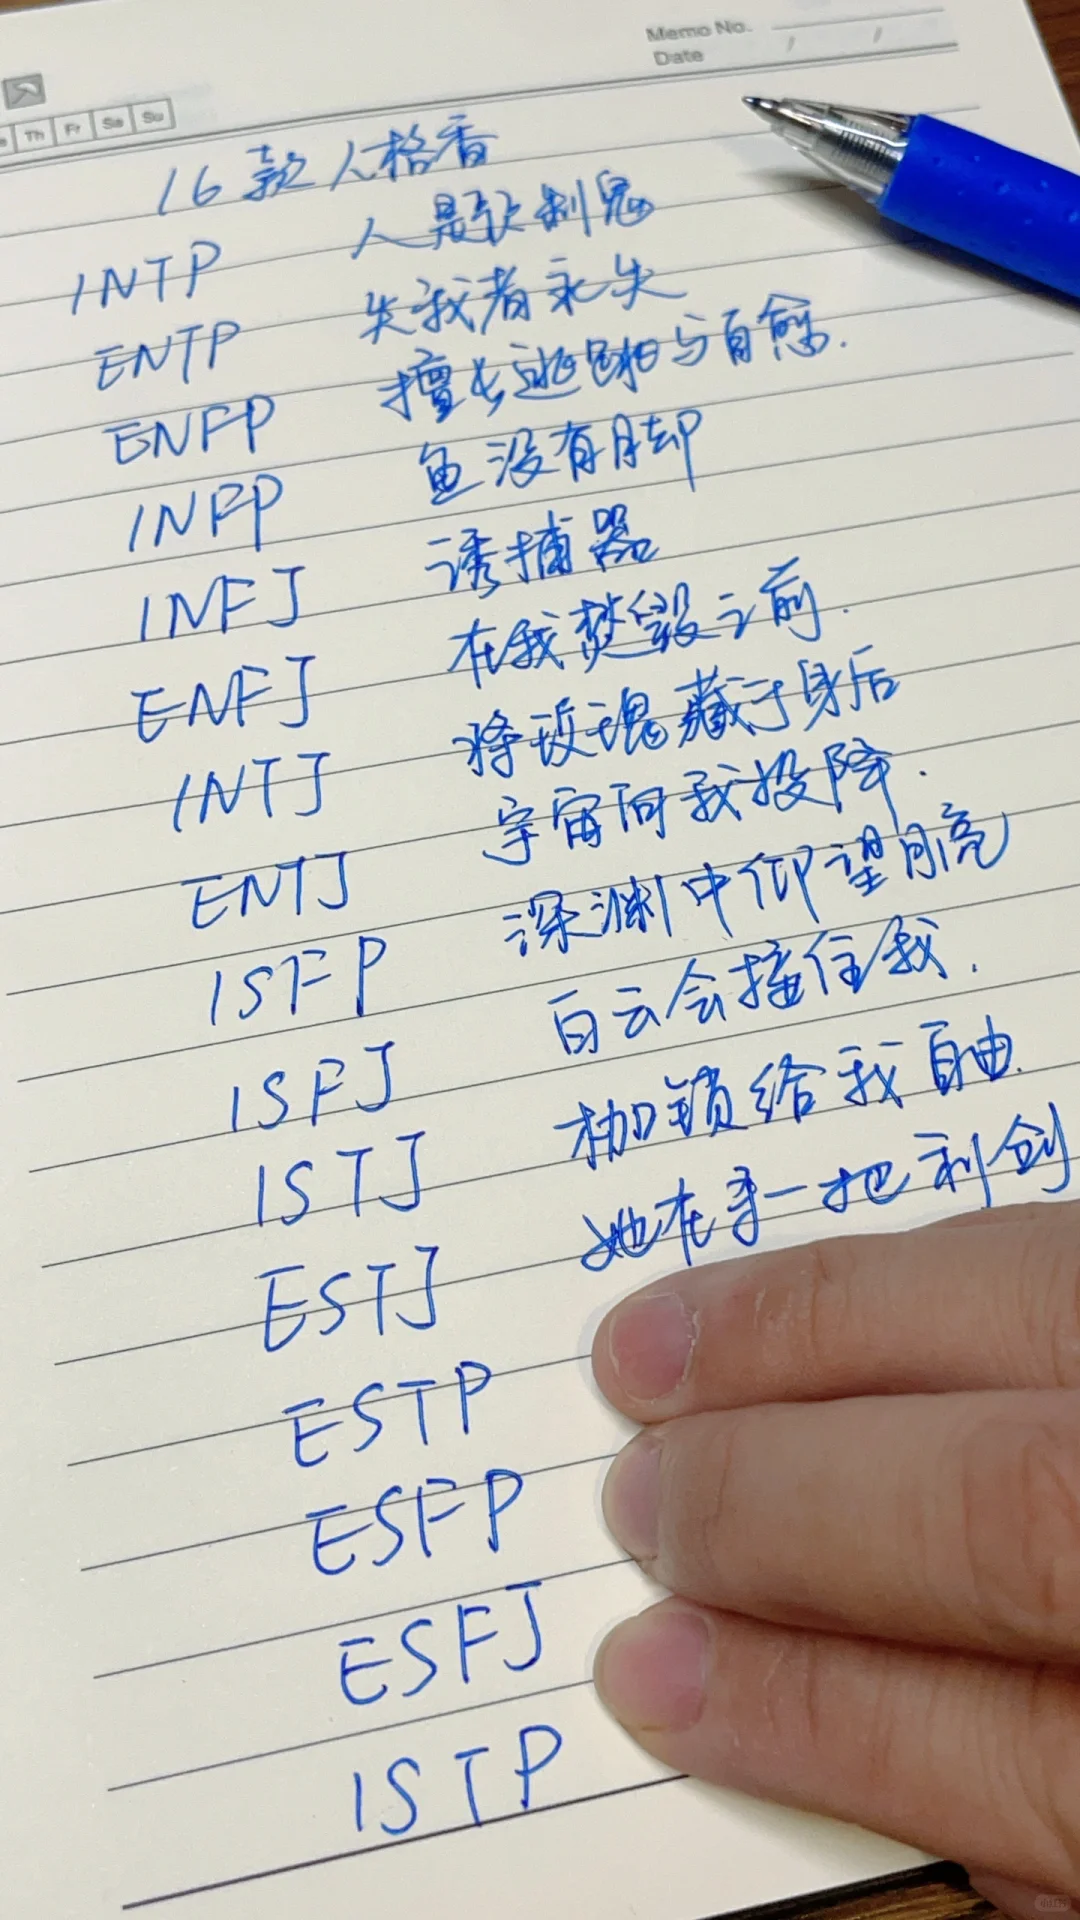 Memo No.
Date / /
Th Fr Sa Su
16款人格香
INTP 人是孤制鬼
ENTP 失我者永失
ENFP 擅长逃跑与自愈.
INFP 鱼没有脚
INFJ 诱捕器
ENFJ 在我焚毁之前.
INTJ 将玫瑰藏于身后
ENTJ 宇宙向我投降.
ISFP 深渊中仰望月亮
ISFJ 白云会接住我.
ISTJ 枷锁给我自由.
ESTJ 她在手一把利剑
ESTP
ESFP
ESFJ
ISTP